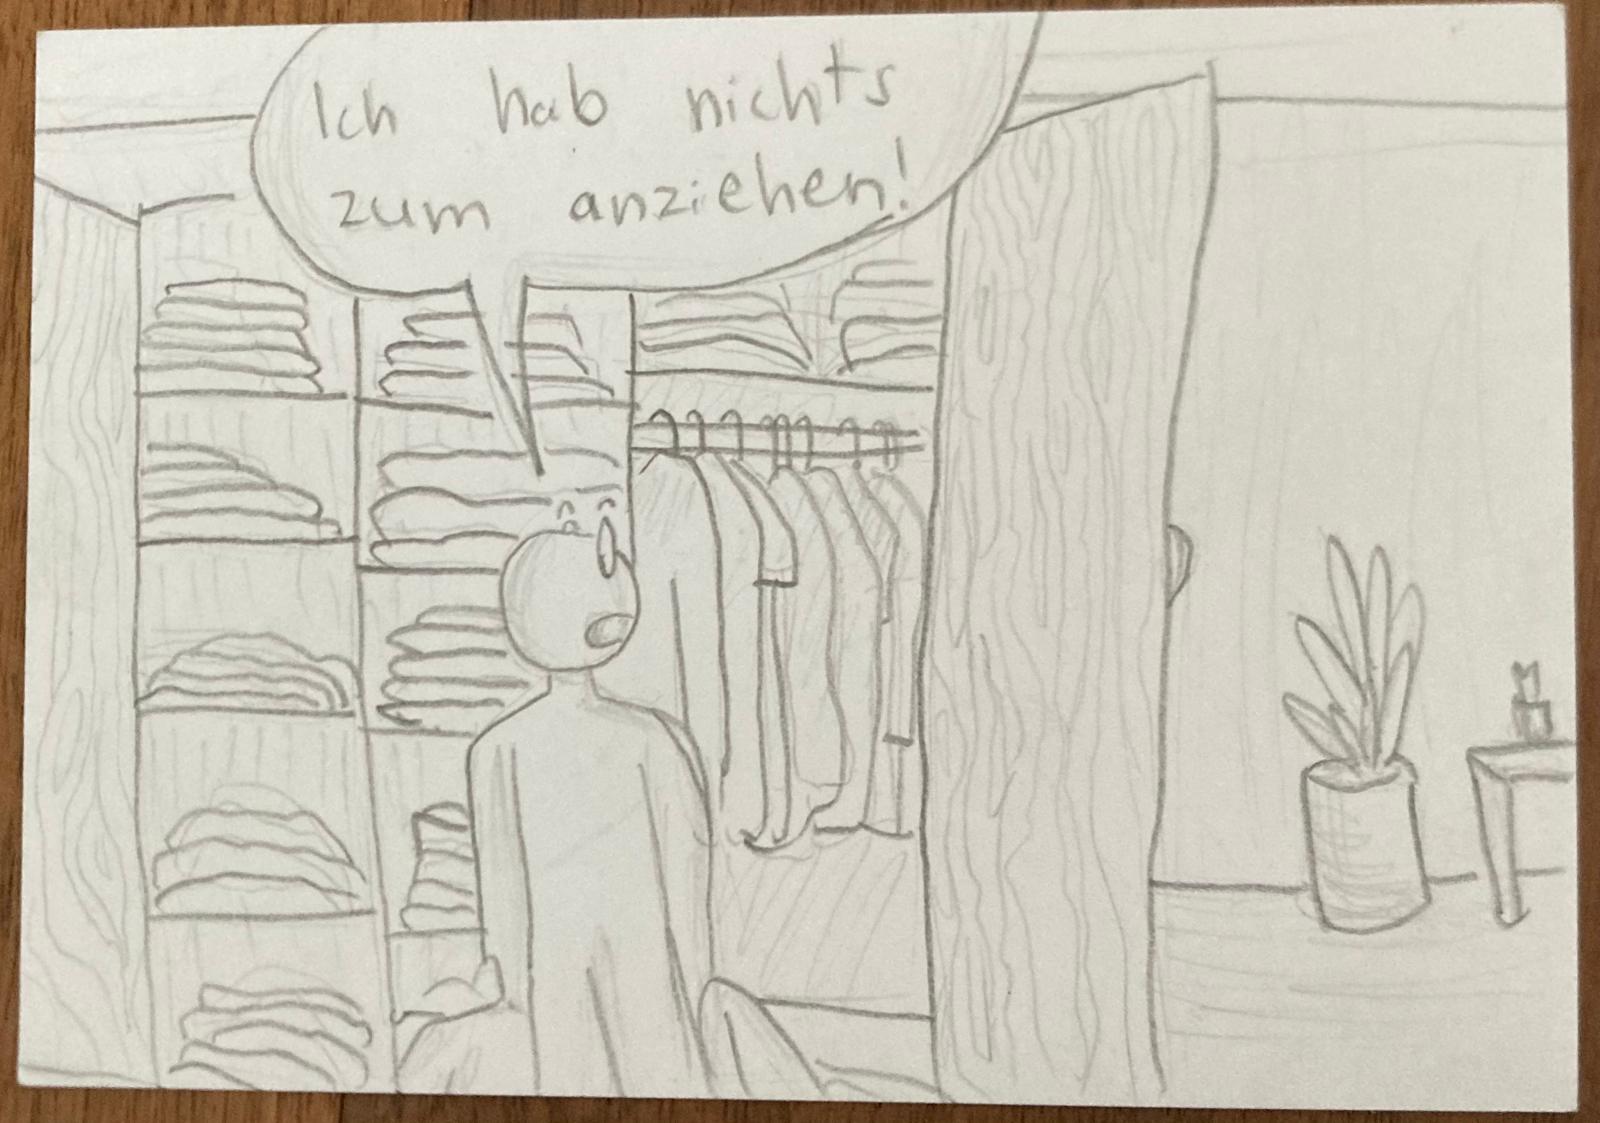 Ich hab nichts
zum anziehen!